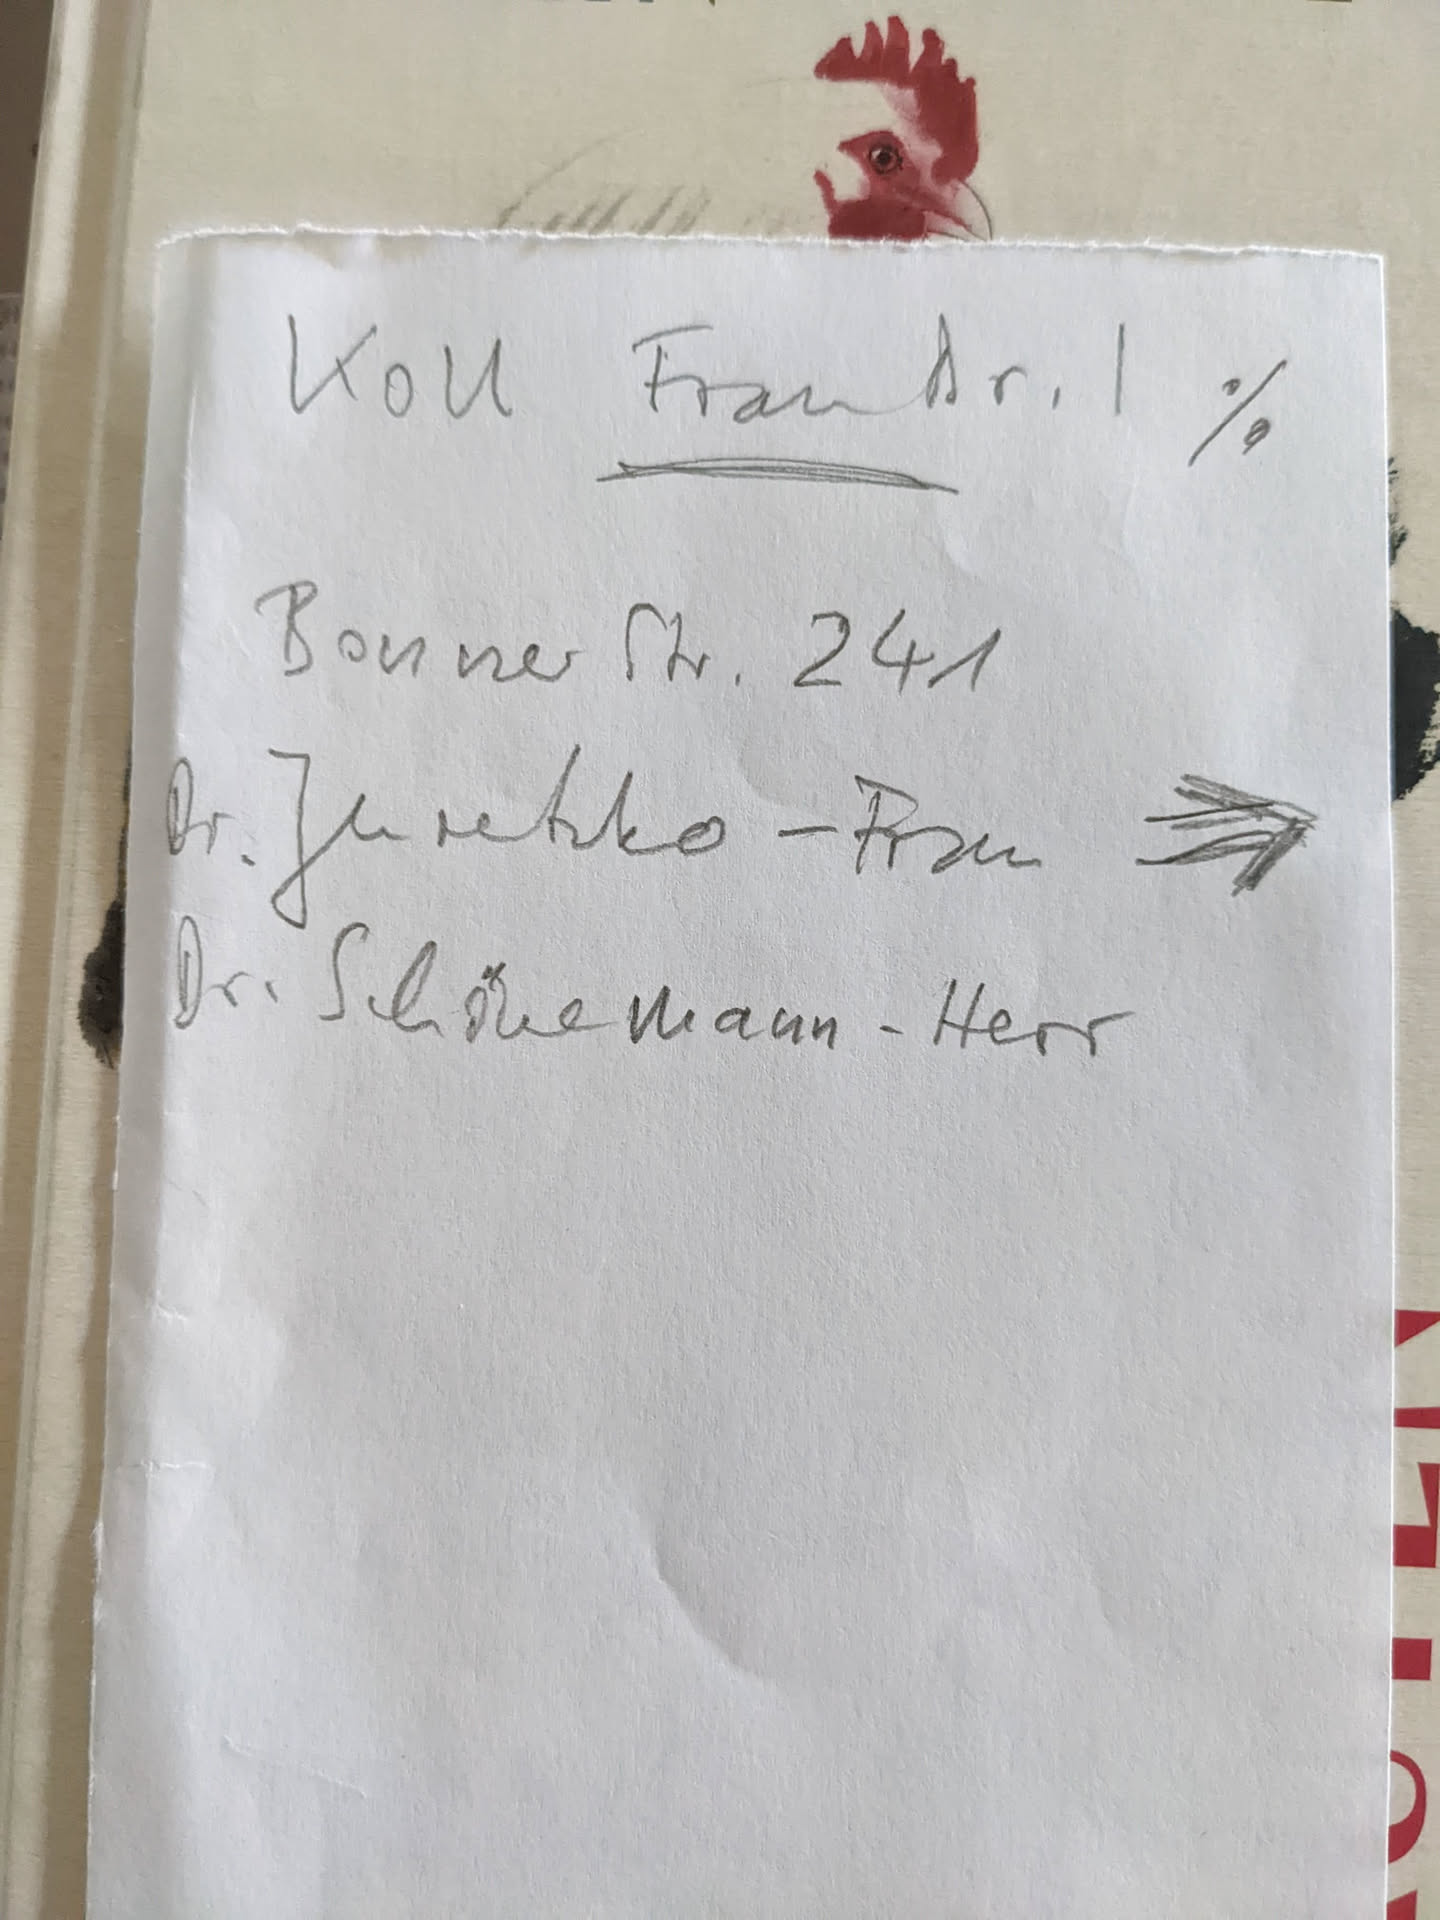 Koll Frau Dr. ! ./.
Bonner Str. 241
Dr. Juretzko - Frau ⇒
Dr. Schönemann - Herr